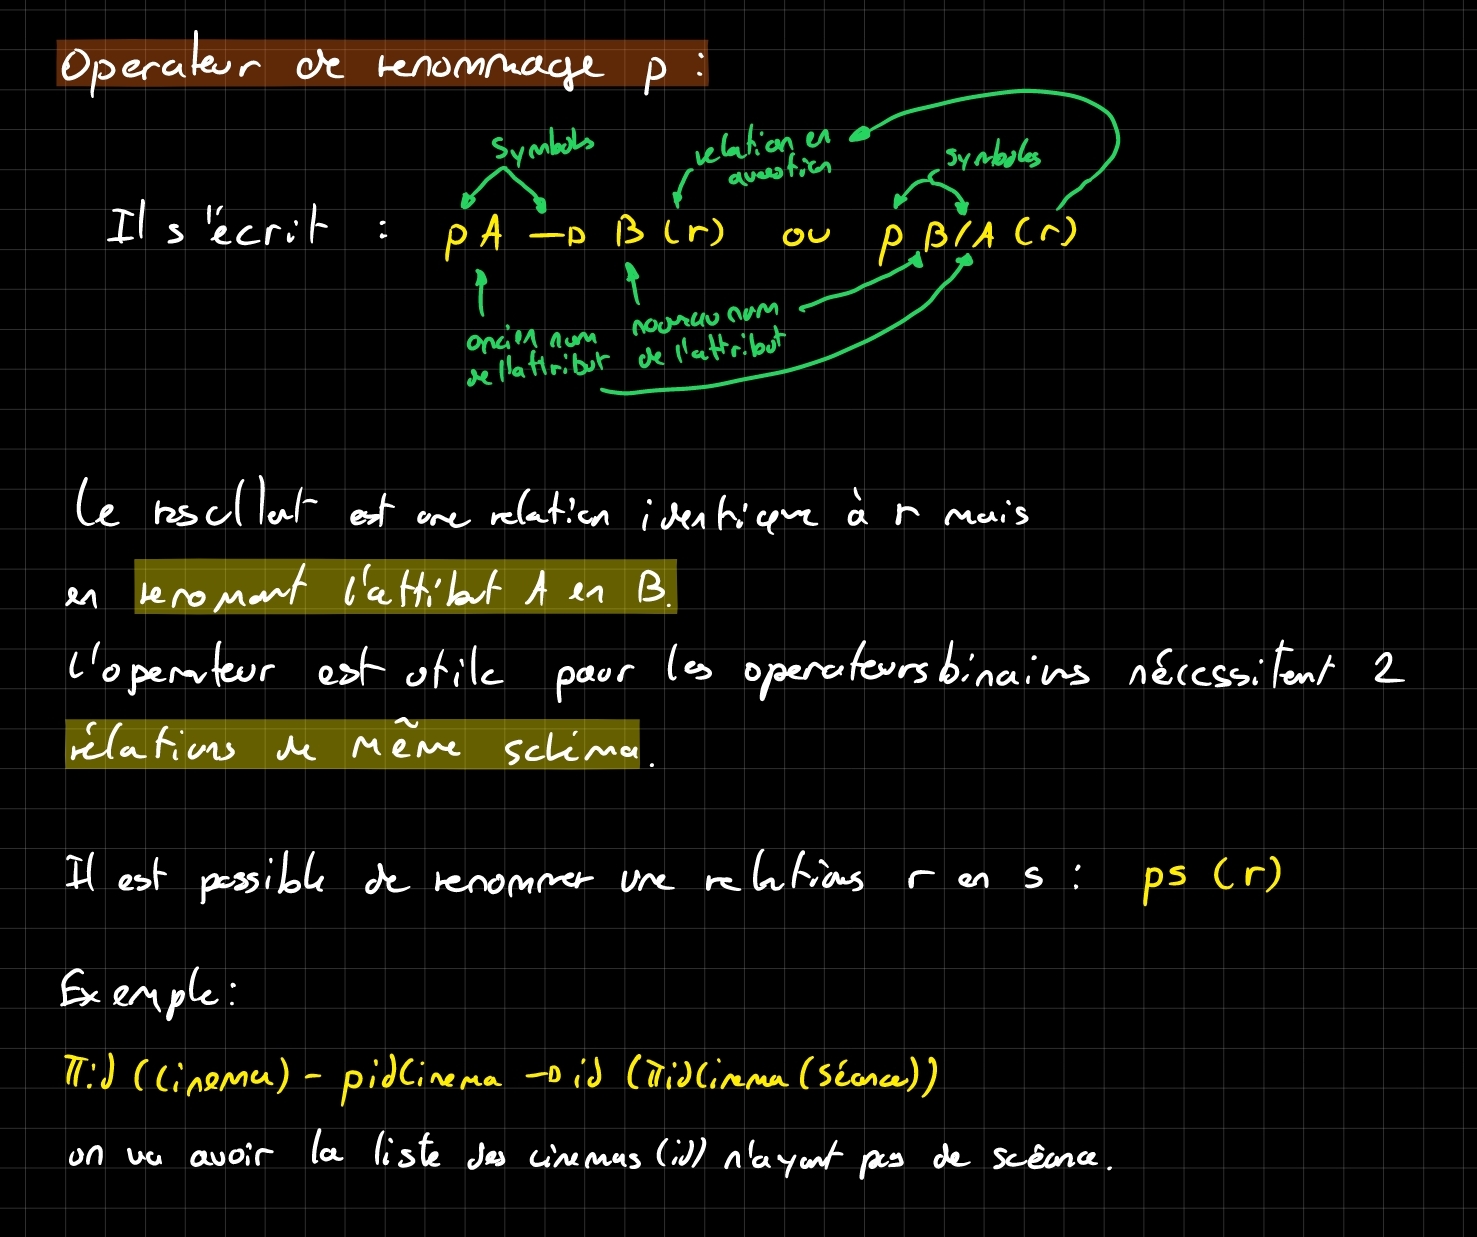 Operateur de renommage ρ :
symbols
relation en
question
symboles
Il s'écrit : ρ A → B (r) ou ρ B/A (r)
ancien nom
de l'attribut
nouveau nom
de l'attribut
Le resultat est une relation identique à r mais
en renomant l'attibut A en B.
L'operateur est utile pour les operateurs binairs nécessitent 2
rélations de même schéma.
Il est possible de renommer une relations r en s : ρs (r)
Exemple :
πid (Cinema) - ρidCinema → id (πidCinema (Séance))
on va avoir la liste des cinemas (id) n'ayant pas de scéance.